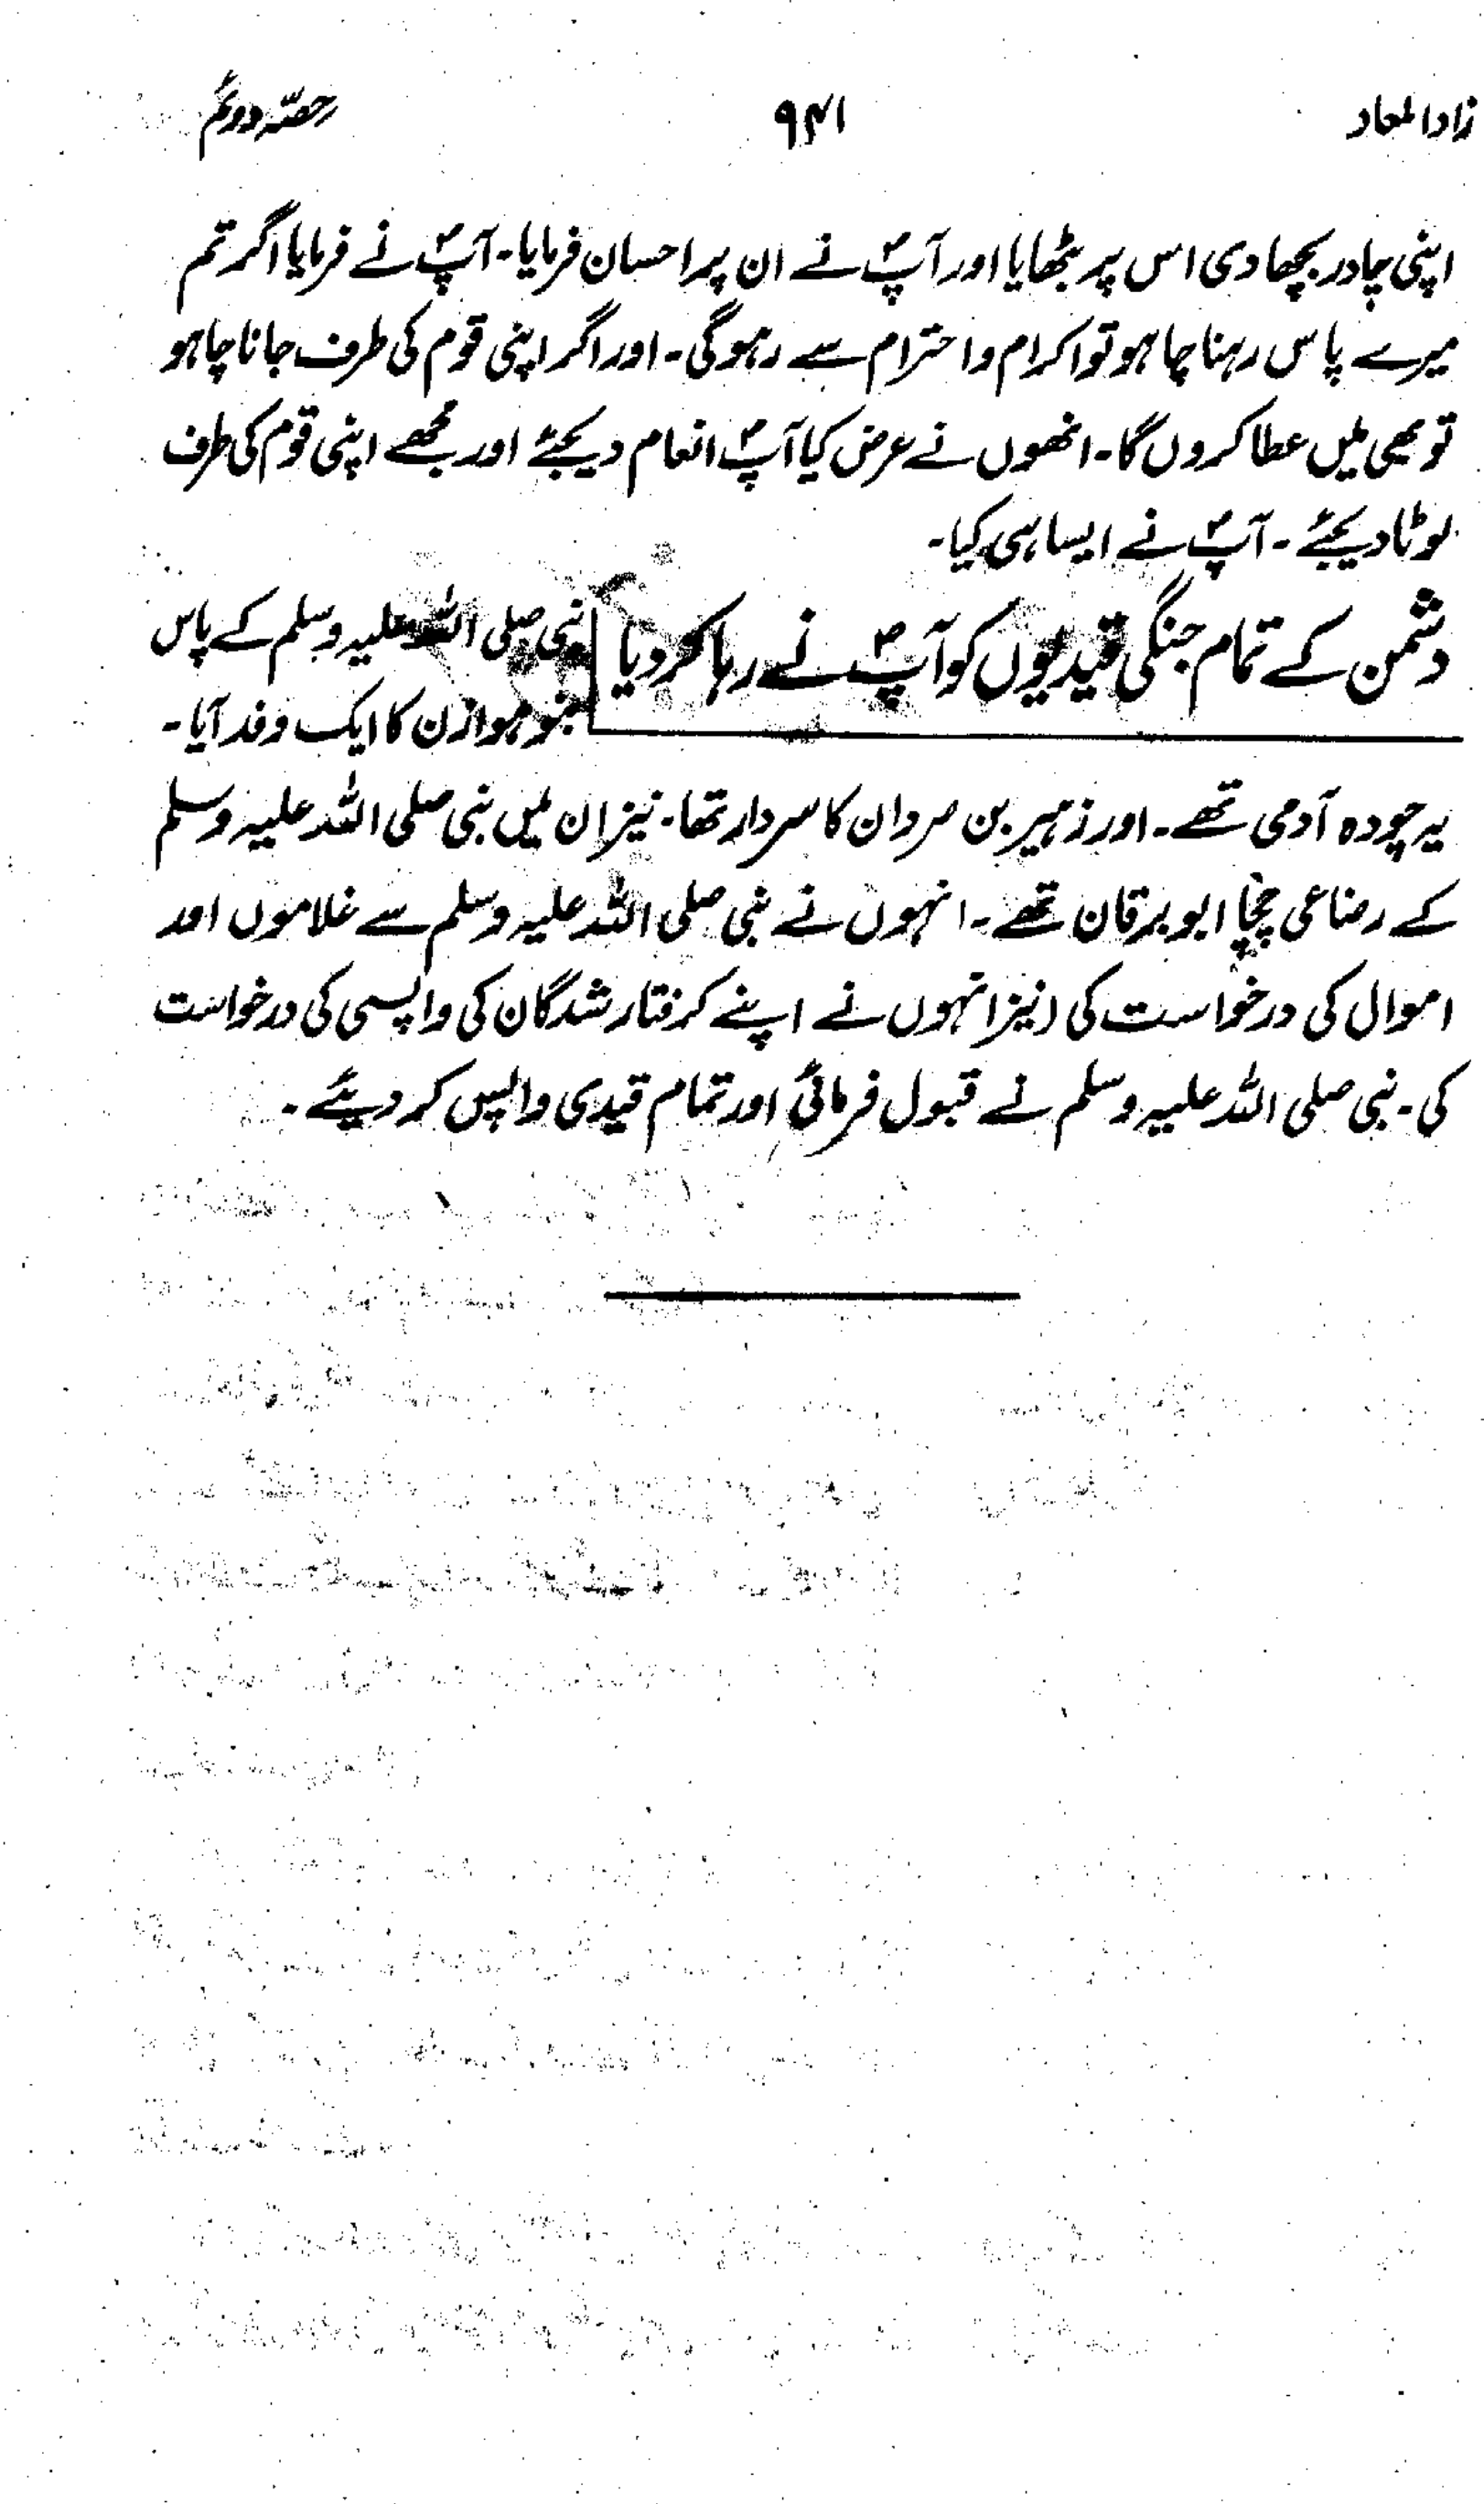 زادالمعاد
۹۴۱
حصّہ دوئم
اپنی چادر بچھا دی اس پر بٹھایا اور آپؐ نے ان پر احسان فرمایا۔ آپؐ نے فرمایا اگر تم
میرے پاس رہنا چاہو تو اکرام و احترام سے رہوگی۔ اور اگر اپنی قوم کی طرف جانا چاہو
تو بھی میں عطا کروں گا۔ انھوں نے عرض کیا آپؐ انعام دیجئے اور مجھے اپنی قوم کی طرف
لوٹا دیجئے۔ آپؐ نے ایسا ہی کیا۔
دشمن کے تمام جنگی قیدیوں کو آپؐ نے رہا کر دیا
نبی صلی اللہ علیہ وسلم کے پاس
بنو ہوازن کا ایک وفد آیا۔
یہ چودہ آدمی تھے۔ اور زہیر بن سردان کا سردار تھا۔ نیز ان میں نبی صلی اللہ علیہ وسلم
کے رضاعی چچا ابو برقان تھے۔ انہوں نے نبی صلی اللہ علیہ وسلم سے غلاموں اور
اموال کی درخواست کی (نیز انہوں نے اپنے گرفتار شدگان کی واپسی کی درخواست
کی۔ نبی صلی اللہ علیہ وسلم نے قبول فرمائی اور تمام قیدی واپس کر دیئے۔